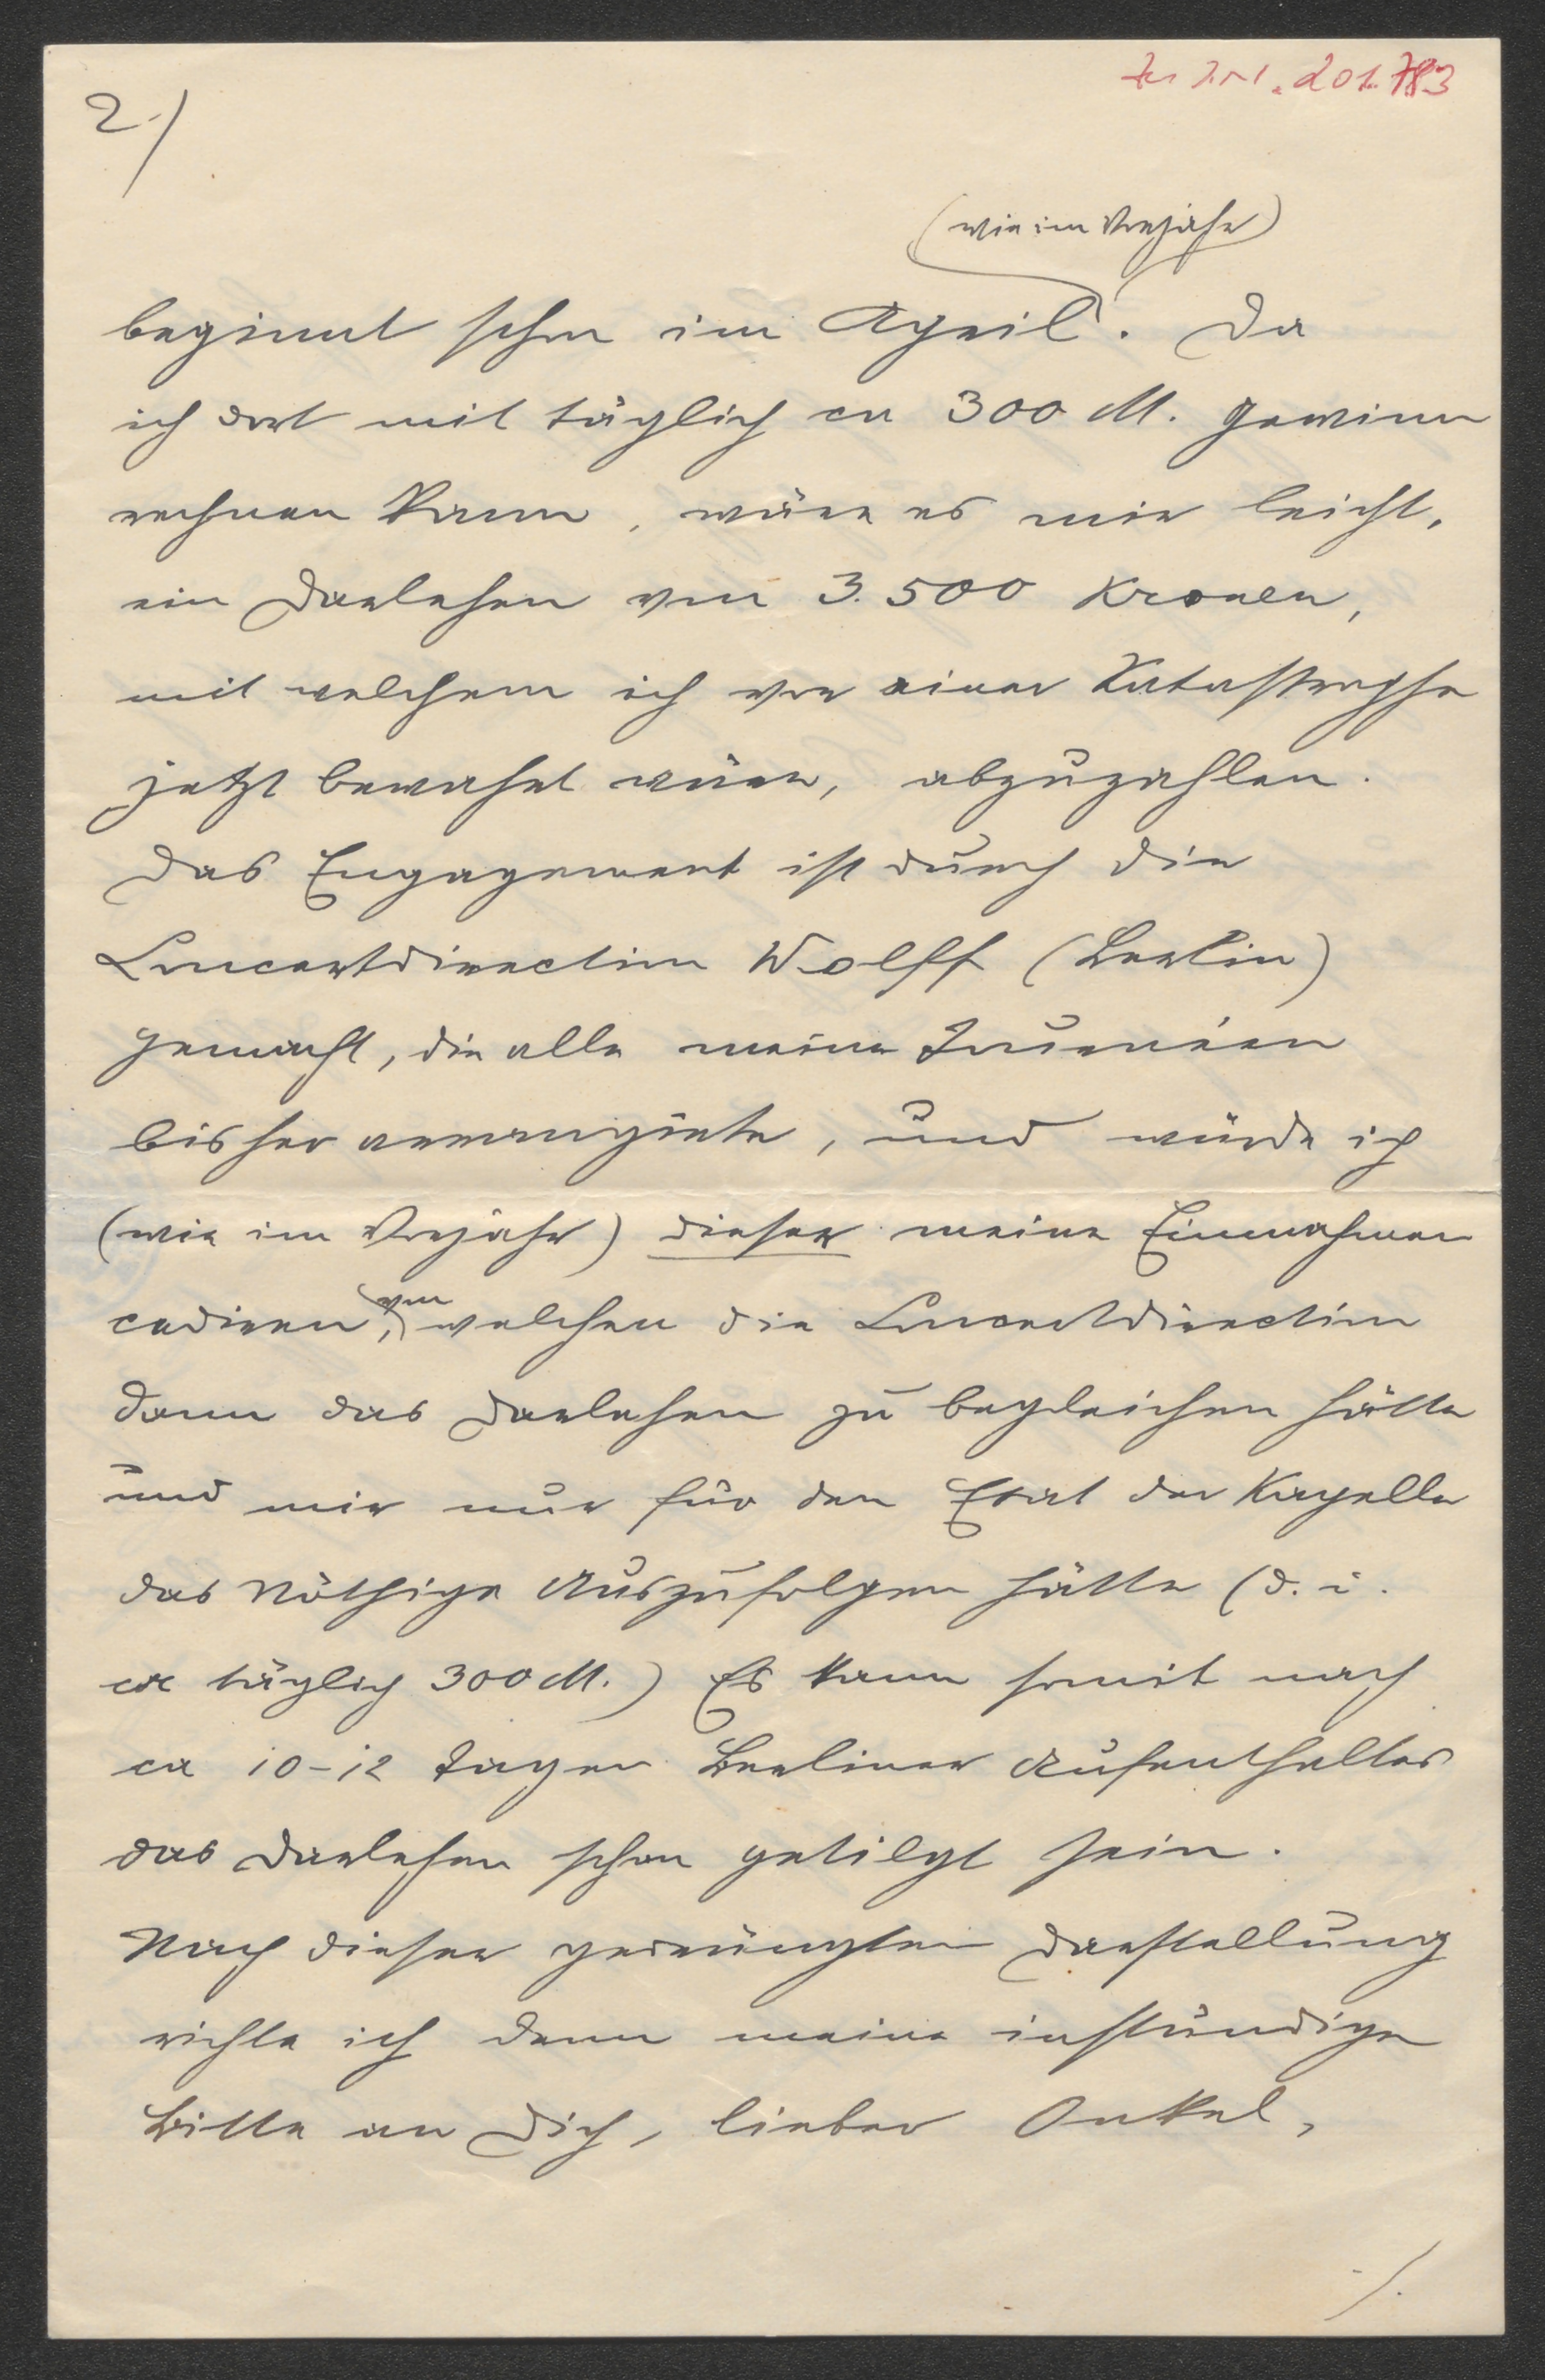 Zu I.N. 201.783
2./
(wie im Vorjahr)
beginnt schon im April. Da
ich dort mit täglich ca 300 M. Gewinn
rechnen kann, wäre es mir leicht,
ein Darlehen von 3.500 Kronen,
mit welchem ich vor einer Katastrophe
jetzt bewahrt wäre, abzuzahlen.
Das Engagement ist durch die
Concertdirection Wolff (Berlin)
gemacht, die alle meine Tournéen
bisher arrangirte, und würde ich
(wie im Vorjahr) dieser meine Einnahmen
cediren, von welchen die Concertdirection
dann das Darlehen zu begleichen hätte
und mir nur für den Etat der Kapelle
das Nöthige auszufolgen hätte (d. i.
ca täglich 300 M.) Es kann somit nach
ca 10-12 Tagen Berliner Aufenthaltes
das Darlehen schon getilgt sein.
Nach dieser gedrängten Darstellung
richte ich denn meine inständige
Bitte an Dich, lieber Onkel,
./.